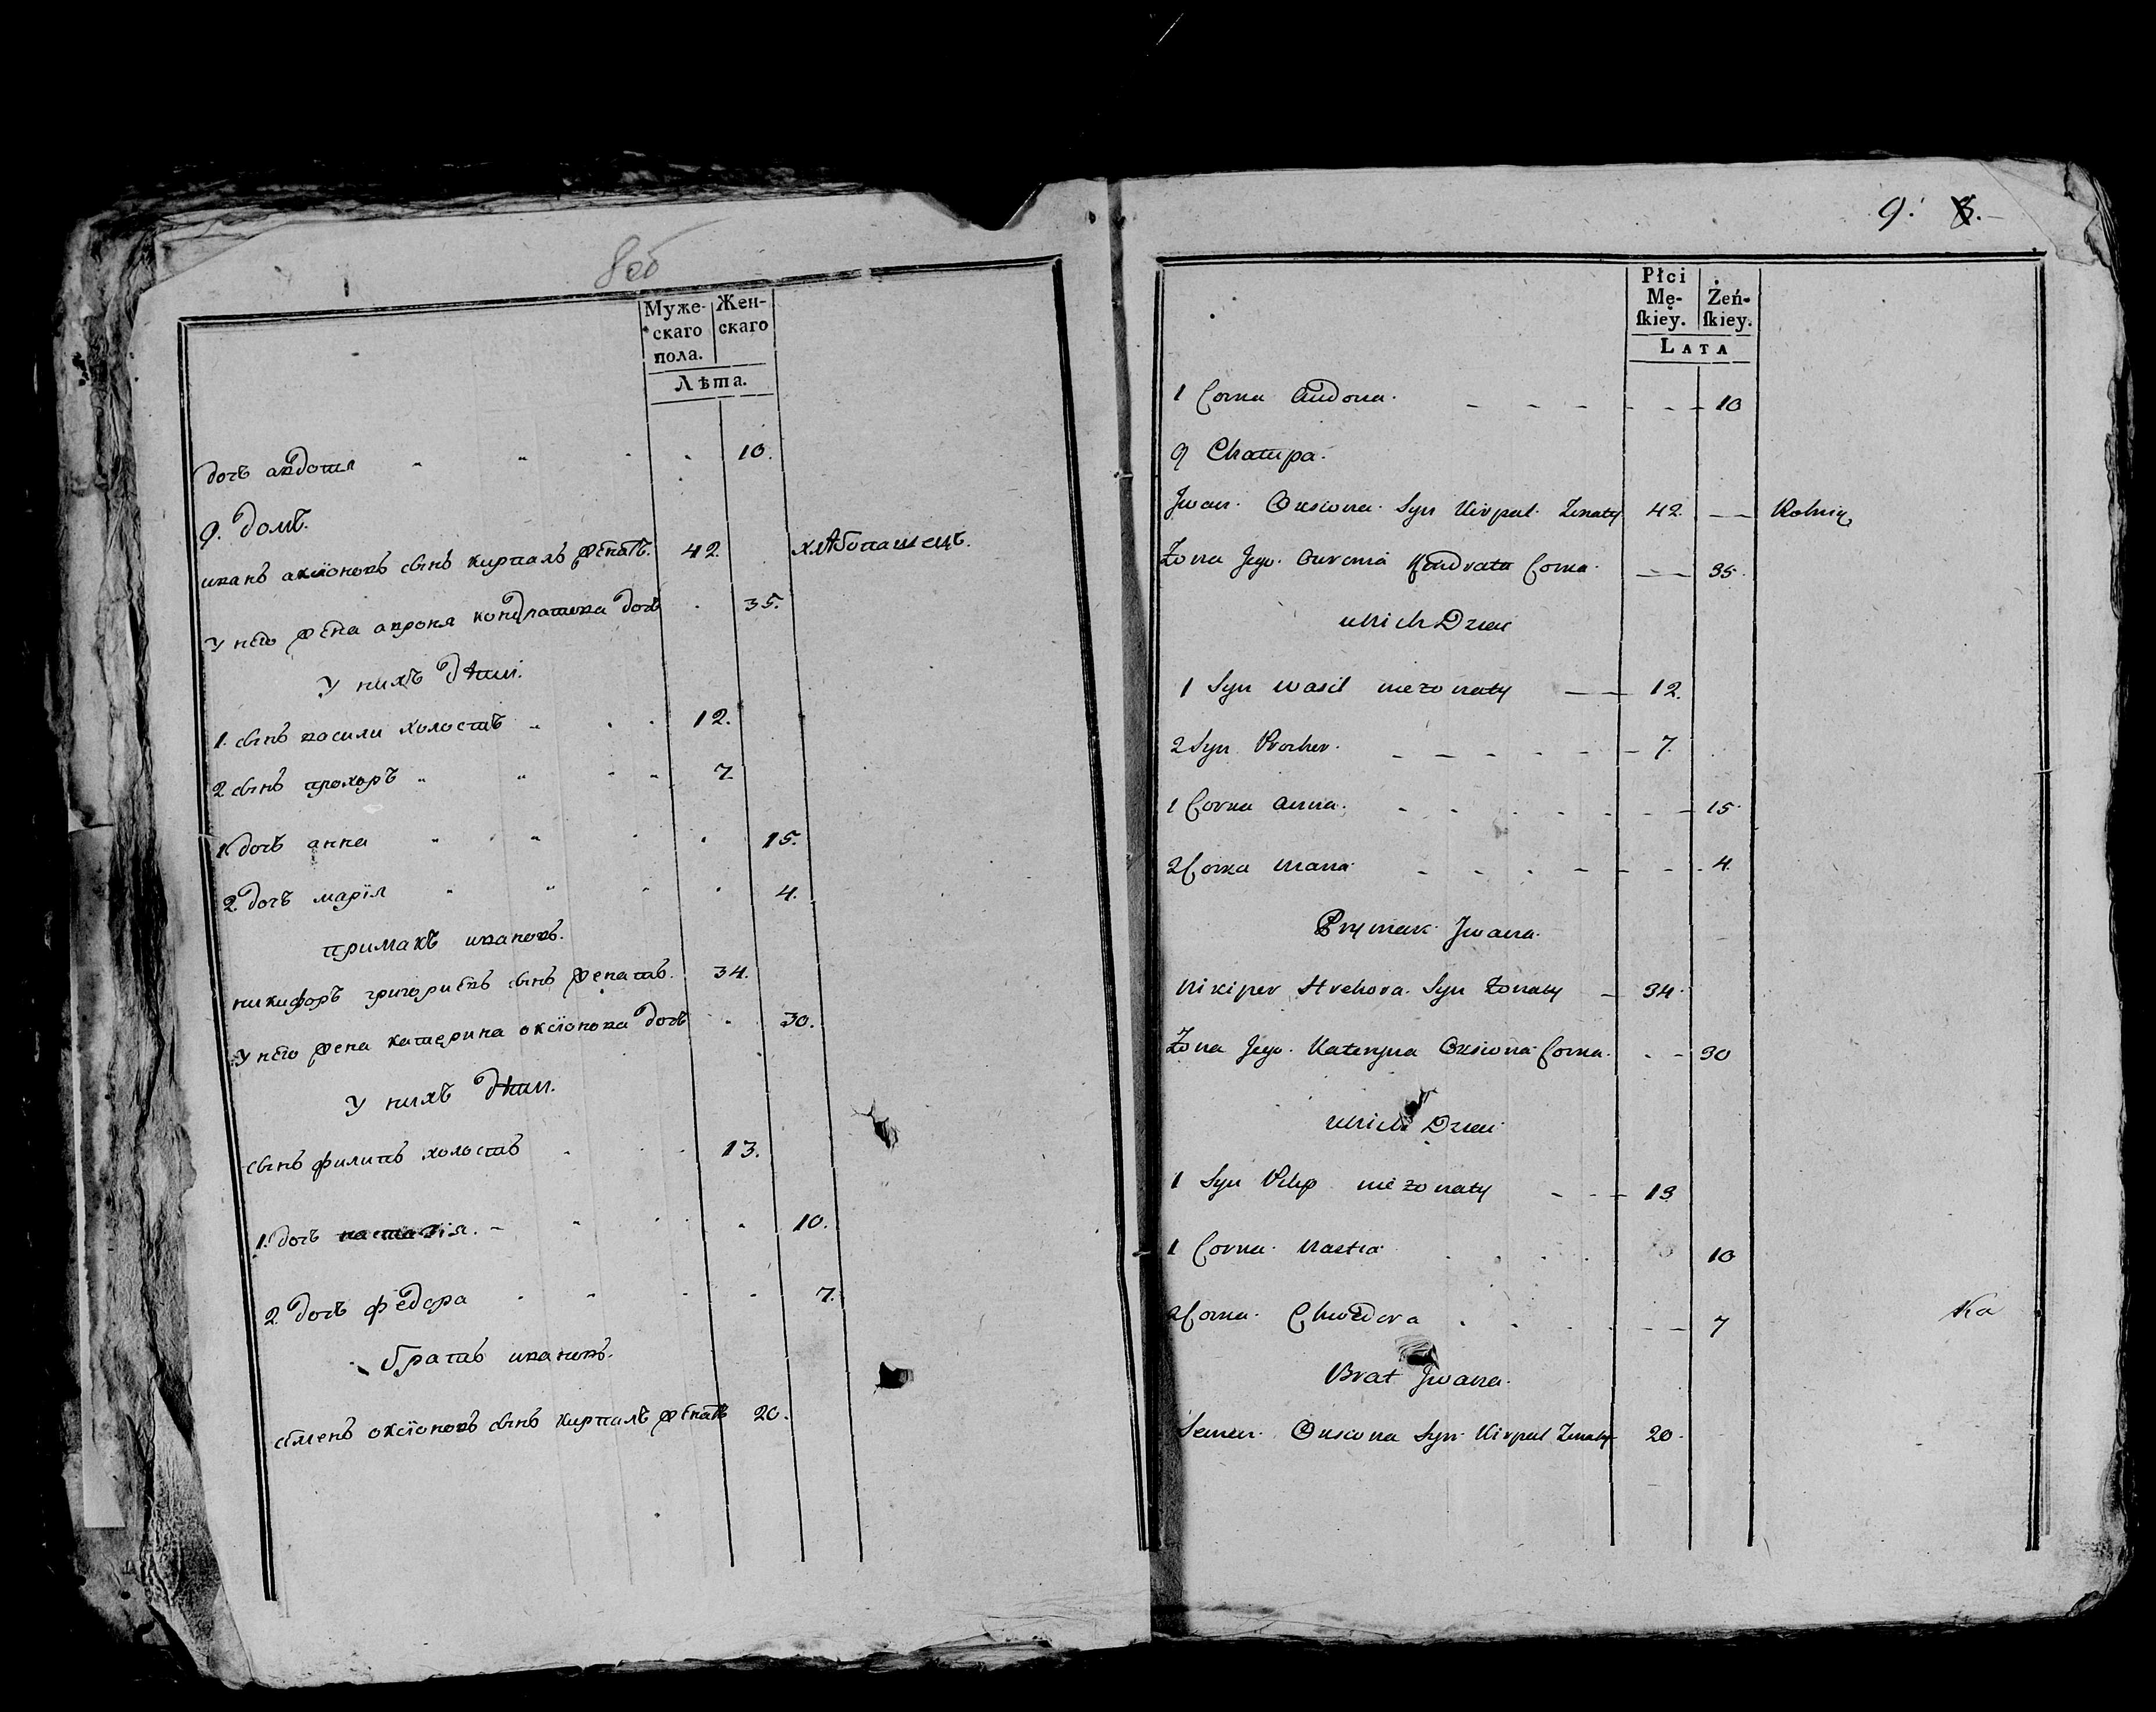 8об
Муже-
скаго
пола.
Жен-
скаго
Лѣта.
дочь авдотя 10.
9. домъ.
иванъ аксіоновъ сынъ кирпаль женатъ. 42. хлѣбопашецъ.
У него жена авроня кондратова дочь 35.
У нихъ дѣти.
1. сынъ василя холостъ 12.
2 сынъ прохоръ 7
1. дочь анна 15.
2. дочь марія 4.
примакъ ивановъ.
никифоръ григориевъ сынъ женатъ. 34.
У него жена катерина оксіонова дочь 30.
У нихъ дѣти.
сынъ филипъ холостъ 13.
1. дочь настасія. 10.
2. дочь федора 7.
братъ ивановъ.
семенъ оксіоновъ сынъ кирпаль женатъ 20.
9. 8.
Płci
Mę-
ſkiey.
Żeń-
ſkiey.
Lata
1 Corka Audocia 10
9 Chatupa.
Jwan Oksiona Syn Kirpal Żonaty 42 Rolnig
Żona Jego Kindrata Corka 35.
unich Dzieci
1 Syn Wasil nieżonaty 12.
2 Syn Prochor. 7.
1 Corka Anna. 15.
2 Corka Maria 4.
Prymak Jwana.
Nikiper Hrehora Syn Żonaty 34.
Żona Jego Kateryna Oksiona Corka. 30
unich Dzieci
1 Syn Pilip nieżonaty 13
1 Corka Nastia 10
2 Corka Chwedora 7
Ka
Brat Jwana.
Semen Oksiona Syn Kirpal Żonaty 20.